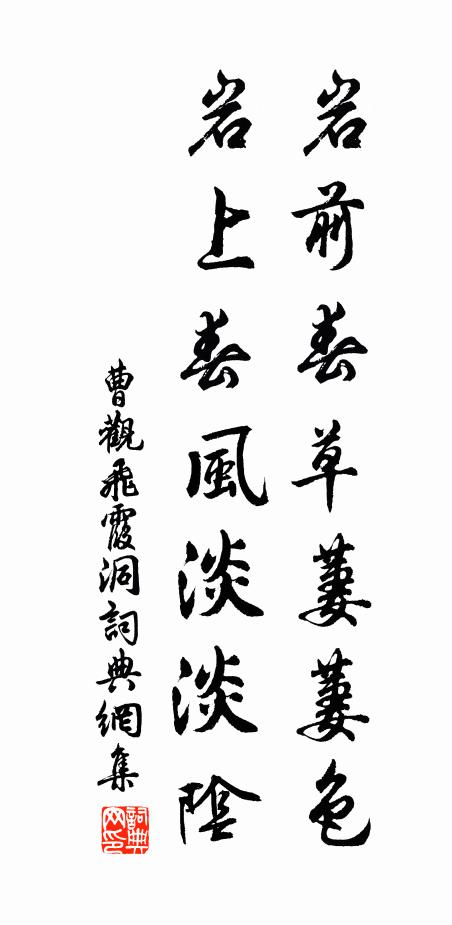 岩前春草萋萋色
岩上春風淡淡陰
曹觀飛霞洞詞典網集
詞典網印